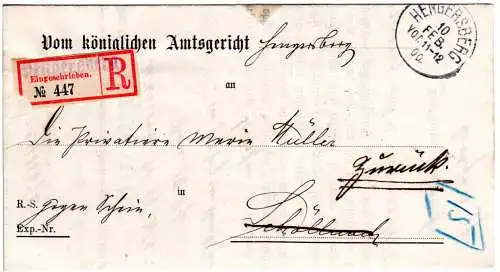 HENGERSBERG
10
FEB.
VOR 11-12
00.
Vom königlichen Amtsgericht Hengersberg
Hengersberg
Eingeschrieben.
R
№ 447
an
Die Privatiere Marie Müller
Zurück.
in
R.-S. Gegen Schein,
Schöllnach
Exp.-Nr.
15